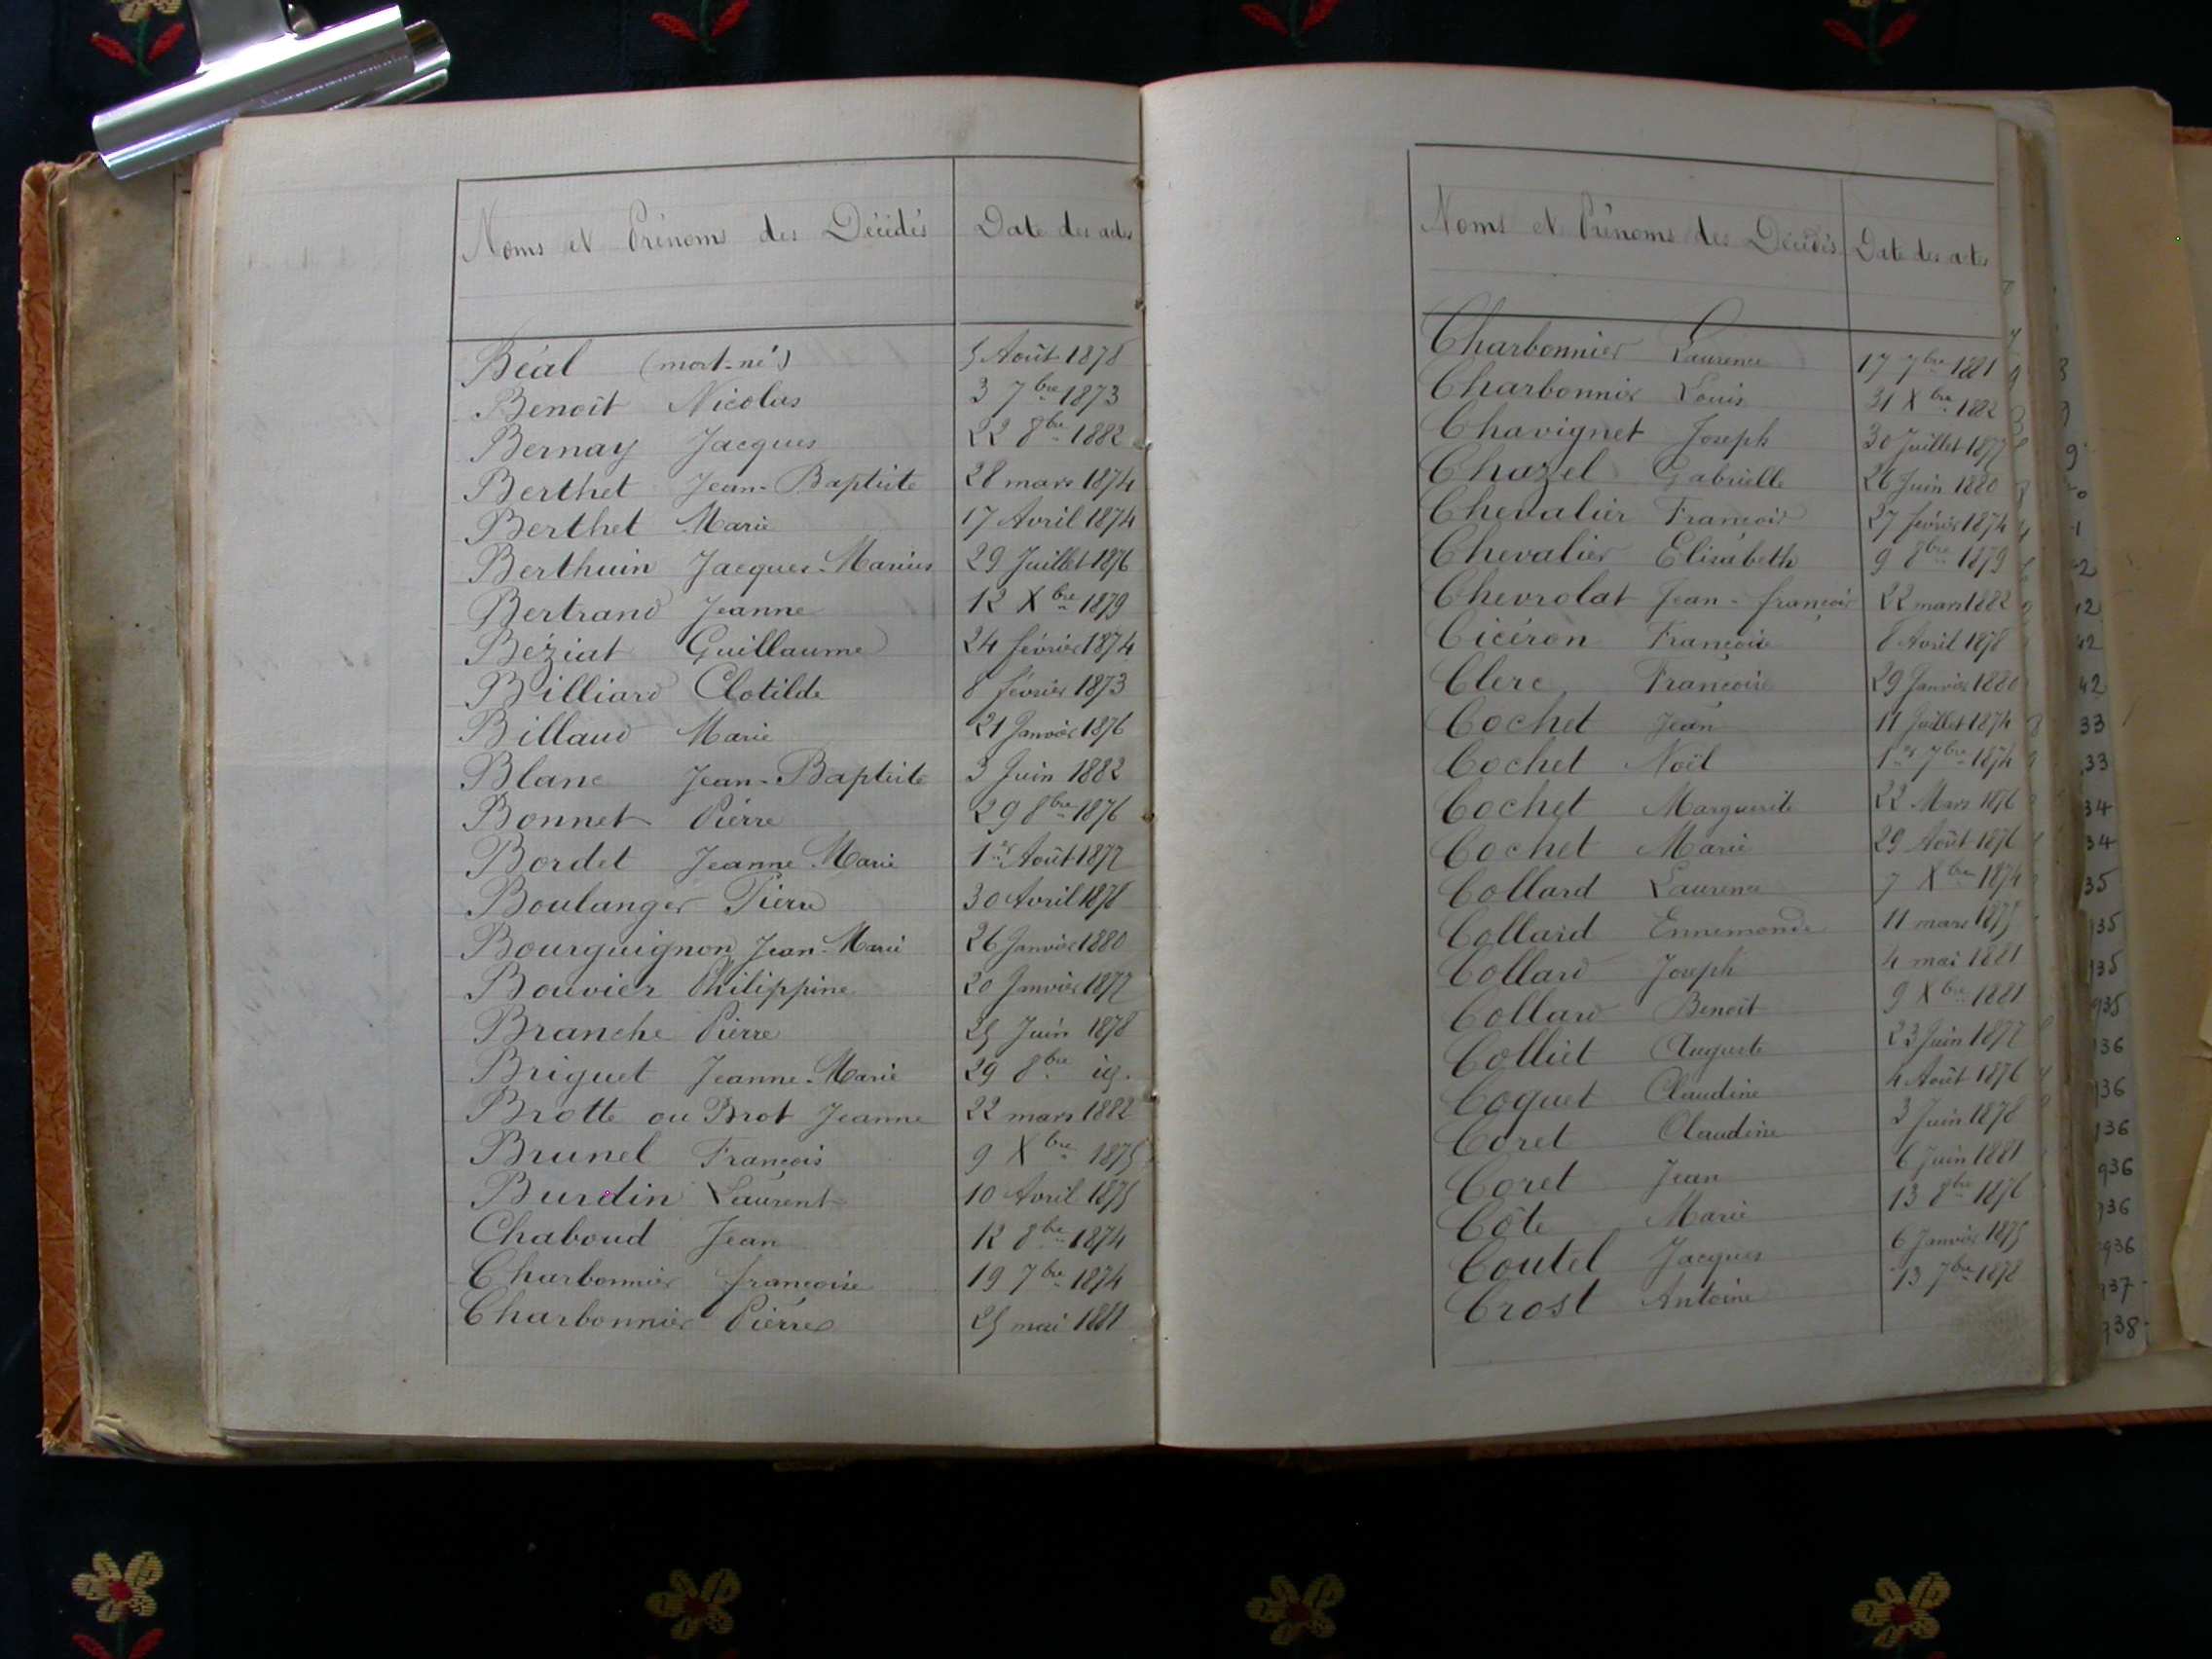 Noms et Prénoms des Décédés Date des actes
Béal (mort-né) 5 Août 1878
Benoît Nicolas 3 7bre 1873
Bernay Jacques 22 8bre 1882
Berthet Jean-Baptiste 28 mars 1874
Berthet Marie 17 Avril 1874
Berthuin Jacques-Marius 29 Juillet 1876
Bertrand Jeanne 12 Xbre 1879
Béziat Guillaume 24 février 1874
Billiard Clotilde 8 février 1873
Billaud Marie 21 Janvier 1876
Blanc Jean-Baptiste 3 Juin 1882
Bonnet Pierre 29 8bre 1876
Bordet Jeanne Marie 1er Août 1877
Boulanger Pierre 30 Avril 1878
Bourguignon Jean-Marie 26 Janvier 1880
Bouvier Philippine 20 Janvier 1877
Branche Pierre 25 Juin 1878
Briguet Jeanne-Marie 29 8bre
Brotte ou Brot Jeanne 22 mars 1882
Brunel François 9 Xbre 1875
Burdin Laurent 10 Avril 1875
Chaboud Jean 12 8bre 1874
Charbonnier françoise 19 7bre 1874
Charbonnier Pierre 25 mai 1881
Noms et Prénoms des Décédés Date des actes
Charbonnier Laurence 17 7bre 1881
Charbonnier Louis 31 Xbre 1882
Chavignet Joseph 30 Juillet 1877
Chazel Gabrielle 26 Juin 1880
Chevalier François 27 février 1874
Chevalier Elisabeth 9 8bre 1879
Chevrolat Jean-françois 22 mars 1882
Cicéron Françoise 8 Avril 1878
Clerc Françoise 29 Janvier 1880
Cochet Jean 11 Juillet 1874
Cochet Noël 1er 7bre 1874
Cochet Marguerite 22 Mars 1876
Cochet Marie 29 Août 1876
Collard Laurence 7 Xbre 1874
Collard Ennemonde 11 mars 1875
Collard Joseph 4 mai 1881
Collard Benoît 9 Xbre 1881
Colliet Auguste 23 Juin 1877
Coquet Claudine 4 Août 1876
Coret Claudine 3 Juin 1878
Coret Jean 6 Juin 1881
Côte Marie 13 8bre 1876
Coutel Jacques 6 Janvier 1875
Crost Antoine 13 7bre 1878